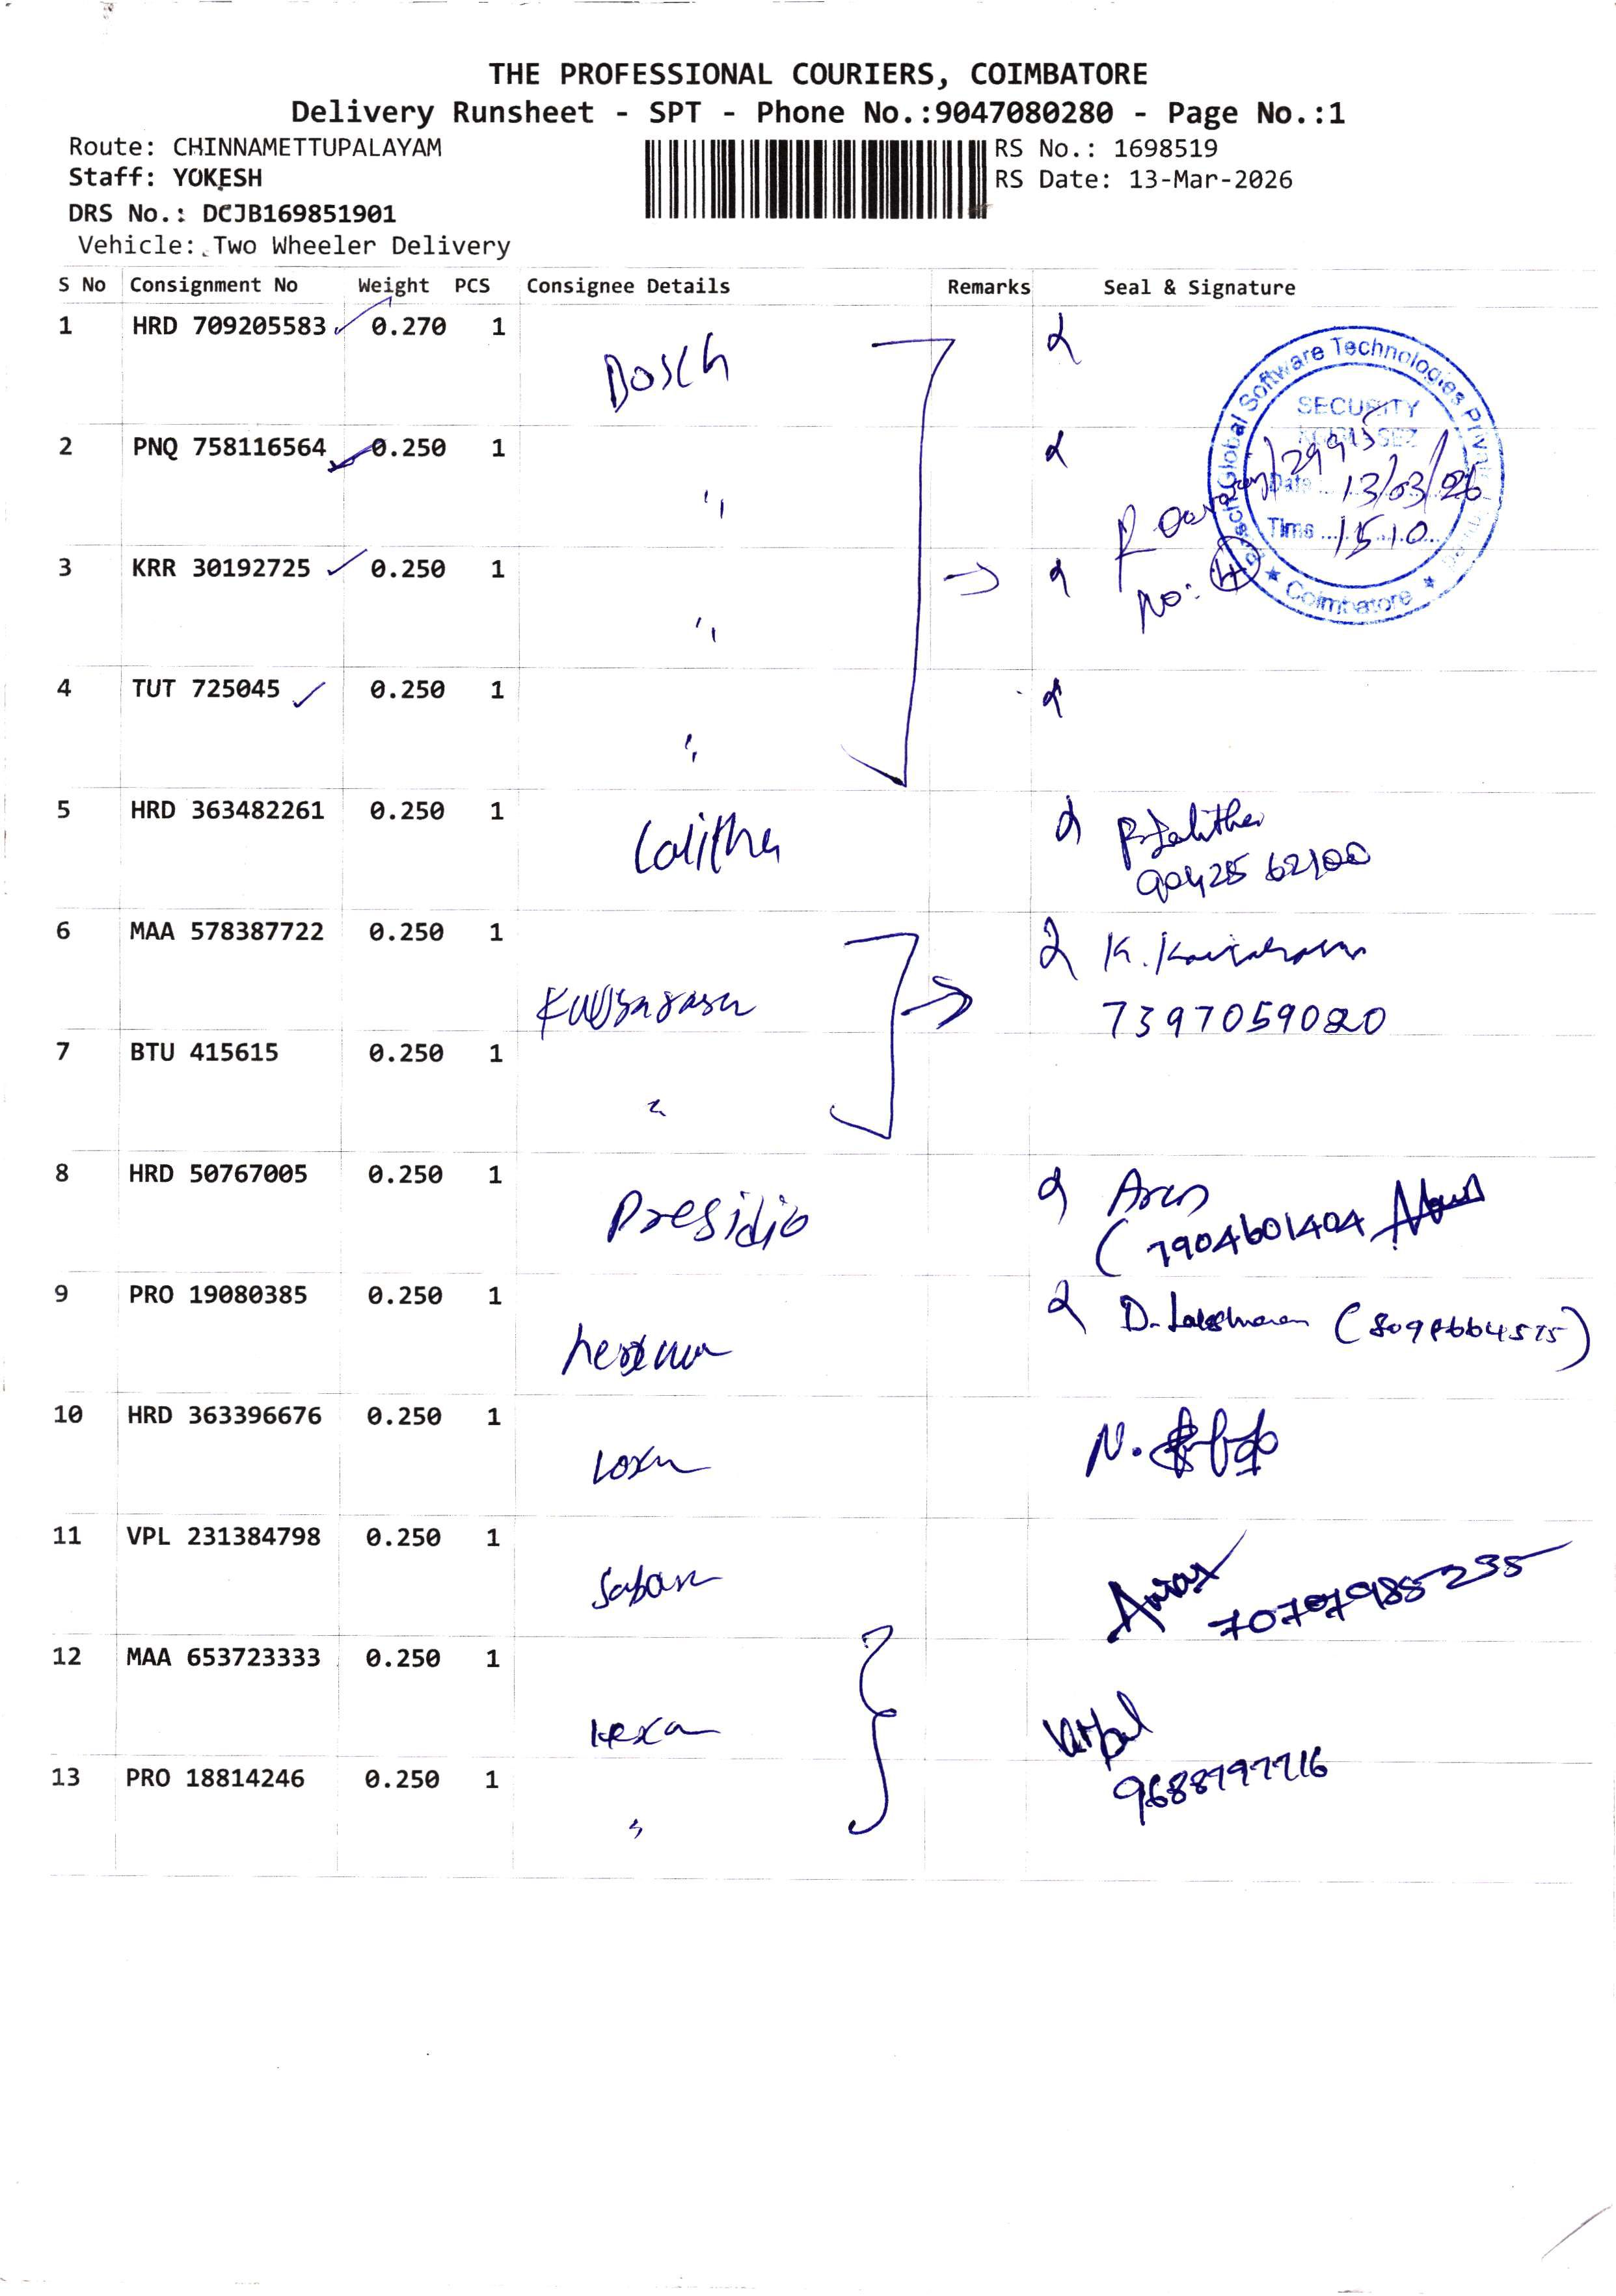 THE PROFESSIONAL COURIERS, COIMBATORE
Delivery Runsheet - SPT - Phone No.:9047080280 - Page No.:1
Route: CHINNAMETTUPALAYAM
RS No.: 1698519
Staff: YOKESH
RS Date: 13-Mar-2026
DRS No.: DCJB169851901
Vehicle: Two Wheeler Delivery
S No Consignment No Weight PCS Consignee Details Remarks Seal & Signature
1 HRD 709205583 0.270 1 Bosch
Global Software Technologies
SECURITY
2 PNQ 758116564 0.250 1 "
Date 13/03/26
Time 15.10
Coimbatore
3 KRR 30192725 0.250 1 "
No: 4
4 TUT 725045 0.250 1 "
5 HRD 363482261 0.250 1 Lalitha
P. Lalitha
90425 62100
6 MAA 578387722 0.250 1
7397059020
7 BTU 415615 0.250 1 "
8 HRD 50767005 0.250 1 Presidio
7904601404
9 PRO 19080385 0.250 1
D. Lakshmanan
10 HRD 363396676 0.250 1
N.
11 VPL 231384798 0.250 1
12 MAA 653723333 0.250 1 Hexa
13 PRO 18814246 0.250 1 "